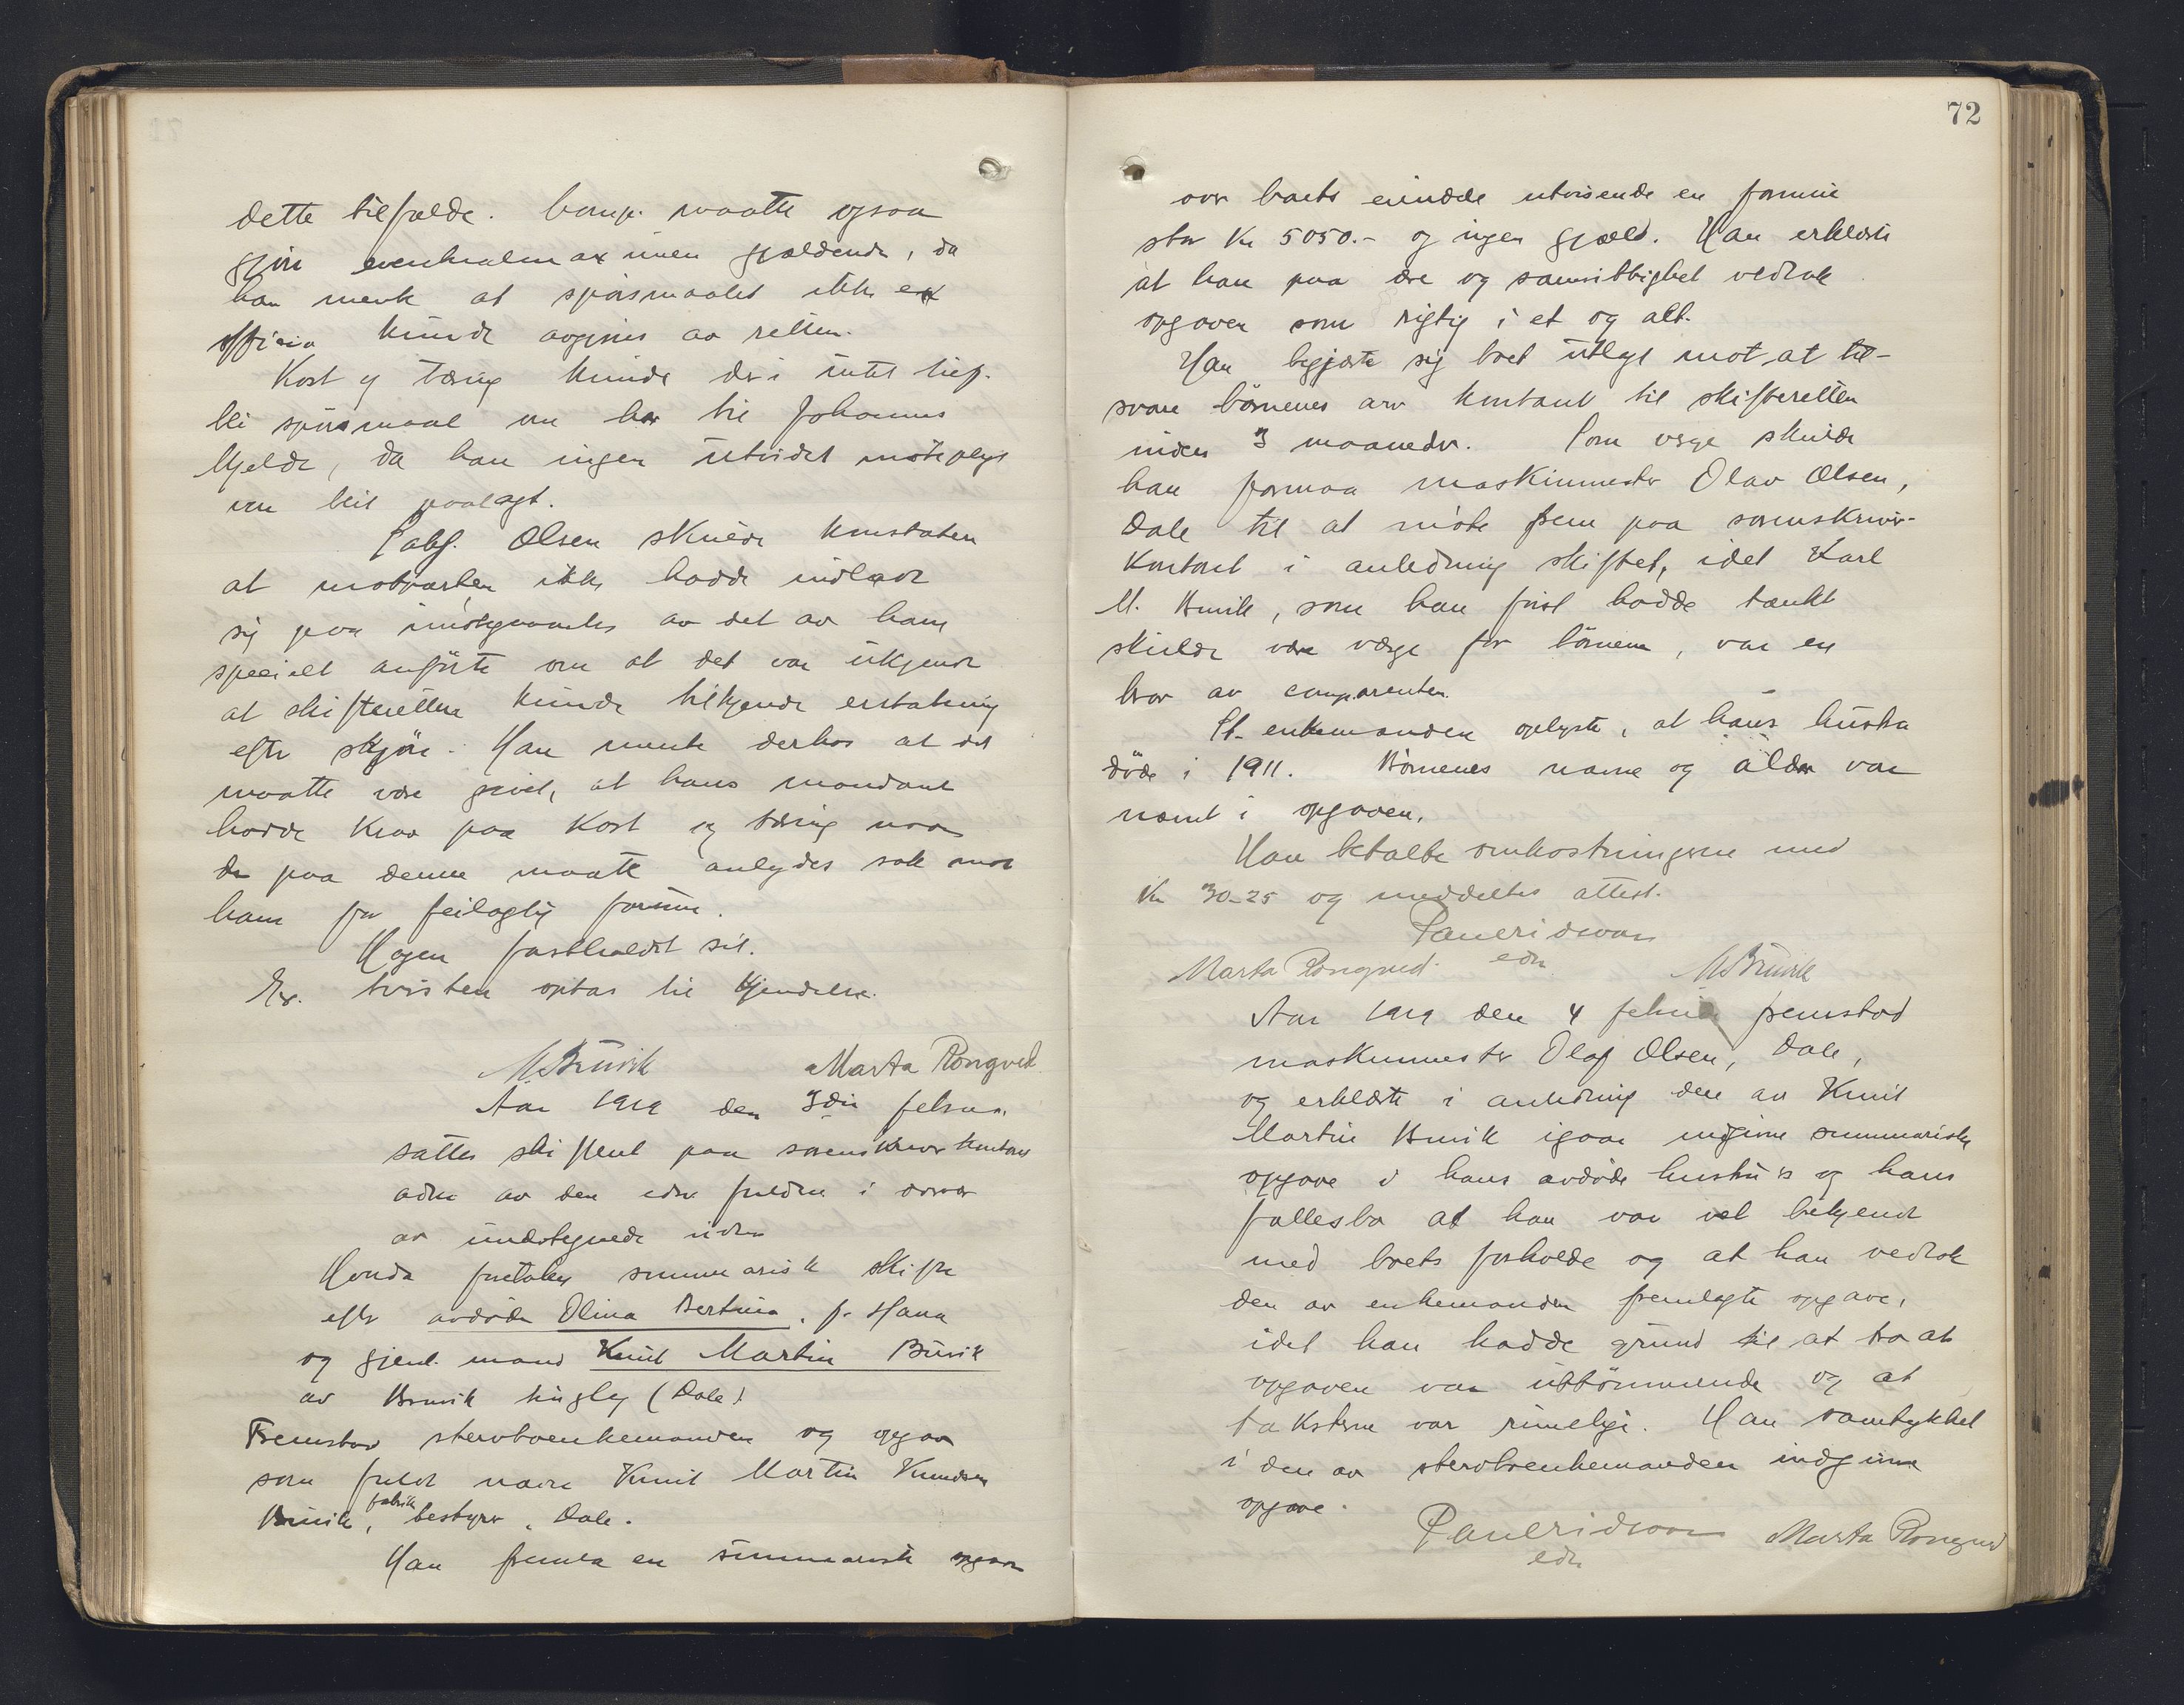 dette tilfælde. Comp. maatte ogsaa
gjøre eventualmaximen gjældende, da
han mente at spørsmaalet ikke ex
officio kunde avgjøres av retten.
Kost og tæring kunde der i intet tilf.
bli spørsmaal om her til Johannes
Mjelde, da han ingen utvidet møtepligt
var blit paalagt.
Sakf. Olsen skulde konstatere
at motparten ikke hadde indladt
sig paa imøtegaaelse av det av ham
specielt anførte om at det var ukjendt
at skifteretten kunde tilkjende erstatning
efter skjøn. Han mente derhos at det
maatte være givet, at hans mandant
hadde krav paa kost og tæring naar
der paa denne maate anlægdes sak mot
ham for feilagtig forum.
Hagen fastholdt sit.
Ex. tvisten optas til kjendelse.
M Bruvik Marta Rongved
Aar 1919 den 3die februar
sattes skifteret paa sorenskriverkontoret
adm av den edsv fuldm i nærvær
av undertegnede vidner
Hvorda foretokes summarisk skifte
efter avdøde Olina Bertina, f. Hana
og gjenl. mand Knut Martin Bruvik
av Bruvik tinglag (Dale).
Fremstod stervboenkemanden og opgav
som fuldt navn Knut Martin Knudsen
Bruvik, fabrik bestyrer, Dale.
Han fremla en summarisk opgave
72
over boets eiendele utvisende en formue
stor Kr 5050.- og ingen gjæld. Han erklærte
at han paa ære og samvittighet vedtok
opgaven som rigtig i et og alt.
Han begjærte sig boet utlagt mot at til-
svare børnenes arv kontant til skifteretten
inden 3 maaneder. Som verge skulde
han formaa maskinmester Olav Olsen,
Dale til at møte frem paa sorenskriver-
kontoret i anledning skiftet, idet Karl
M. Bruvik, som han først hadde tænkt
skulde være værge for børnene, var en
bror av comparenten.
St. enkemanden oplyste, at hans hustru
døde i 1911. Børnenes navne og alder var
nævnt i opgaven.
Han betalte omkostningerne med
Kr 30-25 og meddeltes attest.
Paul Eridsvaag
edsv
Marta Rongved. M Bruvik
Aar 1919 den 4 februar fremstod
maskinmester Olaf Olsen, Dale,
og erklærte i anledning den av Knut
Martin Bruvik igaar indgivne summariske
opgave o hans avdøde hustru's og hans
fællesbo at han var vel bekjendt
med boets forholde og at han vedtok
den av enkemanden fremlagte opgave,
idet han hadde grund til at tro at
opgaven var uttømmende og at
taksterne var rimelige. Han samtykket
i den av stervboenkemanden indgivne
opgave.
Marta Rongved
edsv